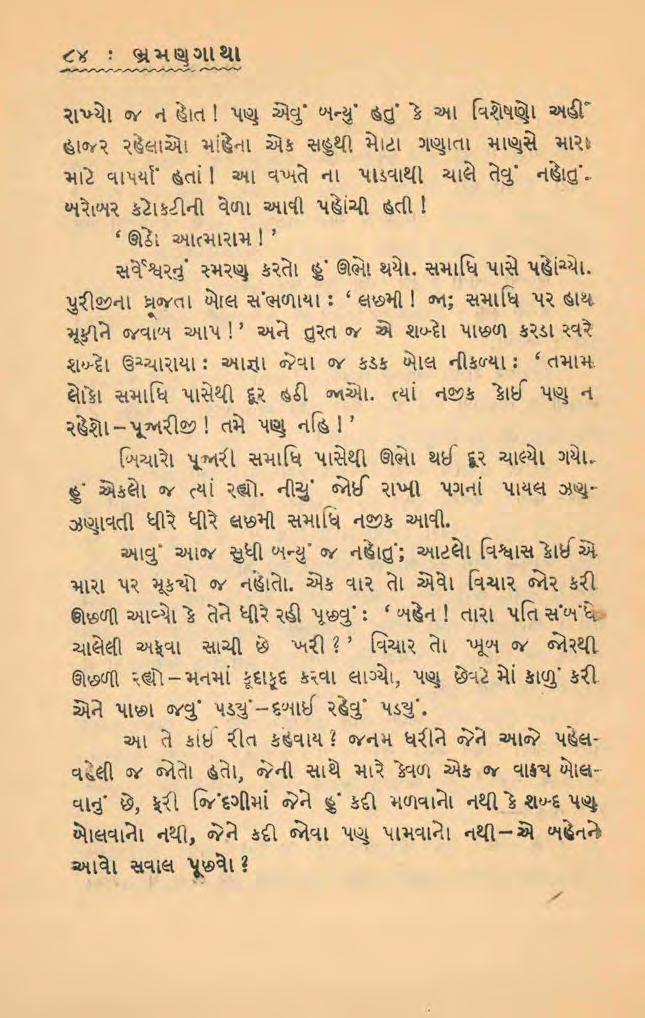 ૮૪ : ભ્રમણગાથા
રાખ્યો જ ન હોત! પણ એવું બન્યું હતું કે આ વિશેષણો અહીં
હાજર રહેલાઓ માંહેના એક સહુથી મોટા ગણાતા માણસે મારા
માટે વાપર્યાં હતાં! આ વખતે ના પાડવાથી ચાલે તેવું નહોતું.
બરોબર કટોકટીની વેળા આવી પહોંચી હતી!
‘ઊઠો આત્મારામ!’
સર્વેશ્વરનું સ્મરણ કરતો હું ઊભો થયો. સમાધિ પાસે પહોંચ્યો.
પુરીજીના ધ્રૂજતા બોલ સંભળાયા : ‘લછમી! જા; સમાધિ પર હાથ
મૂકીને જવાબ આપ!’ અને તુરત જ એ શબ્દો પાછળ કરડા સ્વરે
શબ્દો ઉચ્ચારાયા : આજ્ઞા જેવા જ કડક બોલ નીકળ્યા : ‘તમામ
લોકો સમાધિ પાસેથી દૂર હઠી જાઓ. ત્યાં નજીક કોઈ પણ ન
રહેશો–પૂજારીજી! તમે પણ નહિ!’
બિચારો પૂજારી સમાધિ પાસેથી ઊભો થઈ દૂર ચાલ્યો ગયો.
હું એકલો જ ત્યાં રહ્યો. નીચું જોઈ રાખી પગનાં પાયલ ઝણ-
ઝણાવતી ધીરે ધીરે લછમી સમાધિ નજીક આવી.
આવું આજ સુધી બન્યું જ નહોતું; આટલો વિશ્વાસ કોઈએ
મારા પર મૂક્યો જ નહોતો. એક વાર તો એવો વિચાર જોર કરી
ઊછળી આવ્યો કે તેને ધીરે રહી પૂછવું : ‘બહેન! તારા પતિ સંબંધે
ચાલેલી અફવા સાચી છે ખરી?’ વિચાર તો ખૂબ જ જોરથી
ઊછળી રહ્યો–મનમાં કૂદાકૂદ કરવા લાગ્યો, પણ છેવટે મોં કાળું કરી
એને પાછા જવું પડયું–દબાઈ રહેવું પડયું.
આ તે કાંઈ રીત કહેવાય? જનમ ધરીને જેને આજે પહેલ-
વહેલી જ જોતો હતો, જેની સાથે મારે કેવળ એક જ વાક્ય બોલ-
વાનું છે, ફરી જિંદગીમાં જેને હું કદી મળવાનો નથી કે શબ્દ પણ
બોલવાનો નથી, જેને કદી જોવા પણ પામવાનો નથી–એ બહેનને
આવો સવાલ પૂછવો?